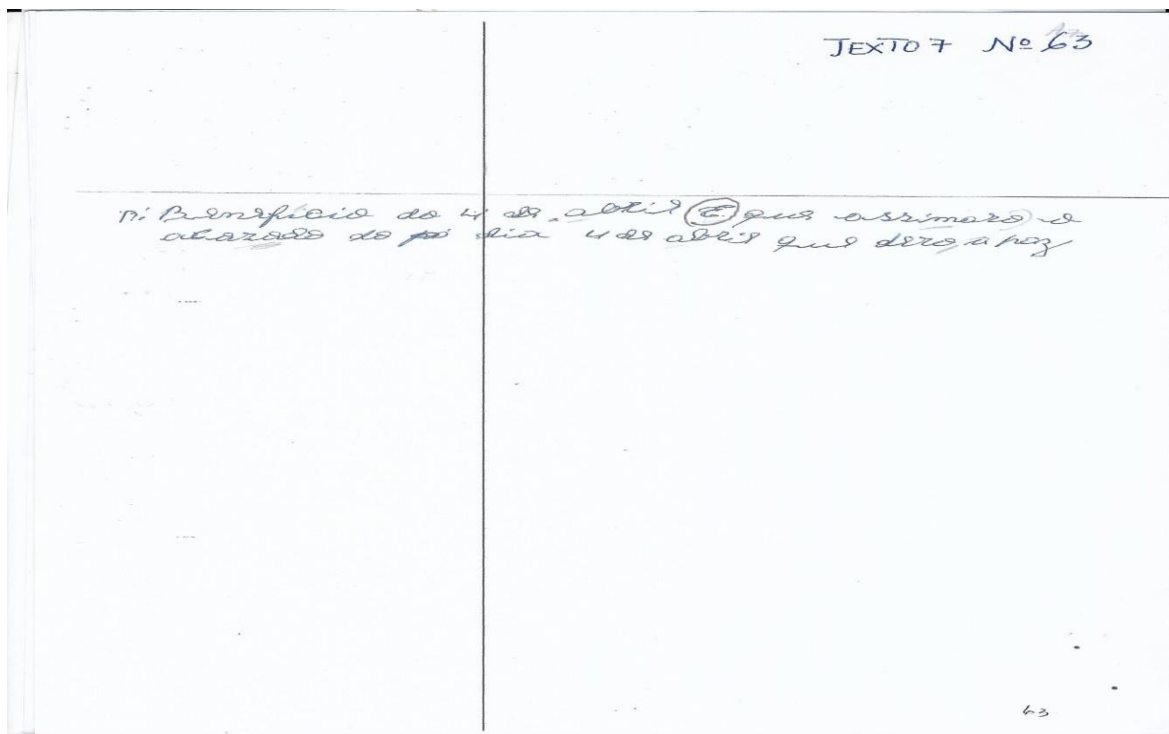 TEXTO 7 Nº 63
R: Benefício do 4 de abril E que assinaro o
acazodo do dia 4 de abril que dero a paz
63